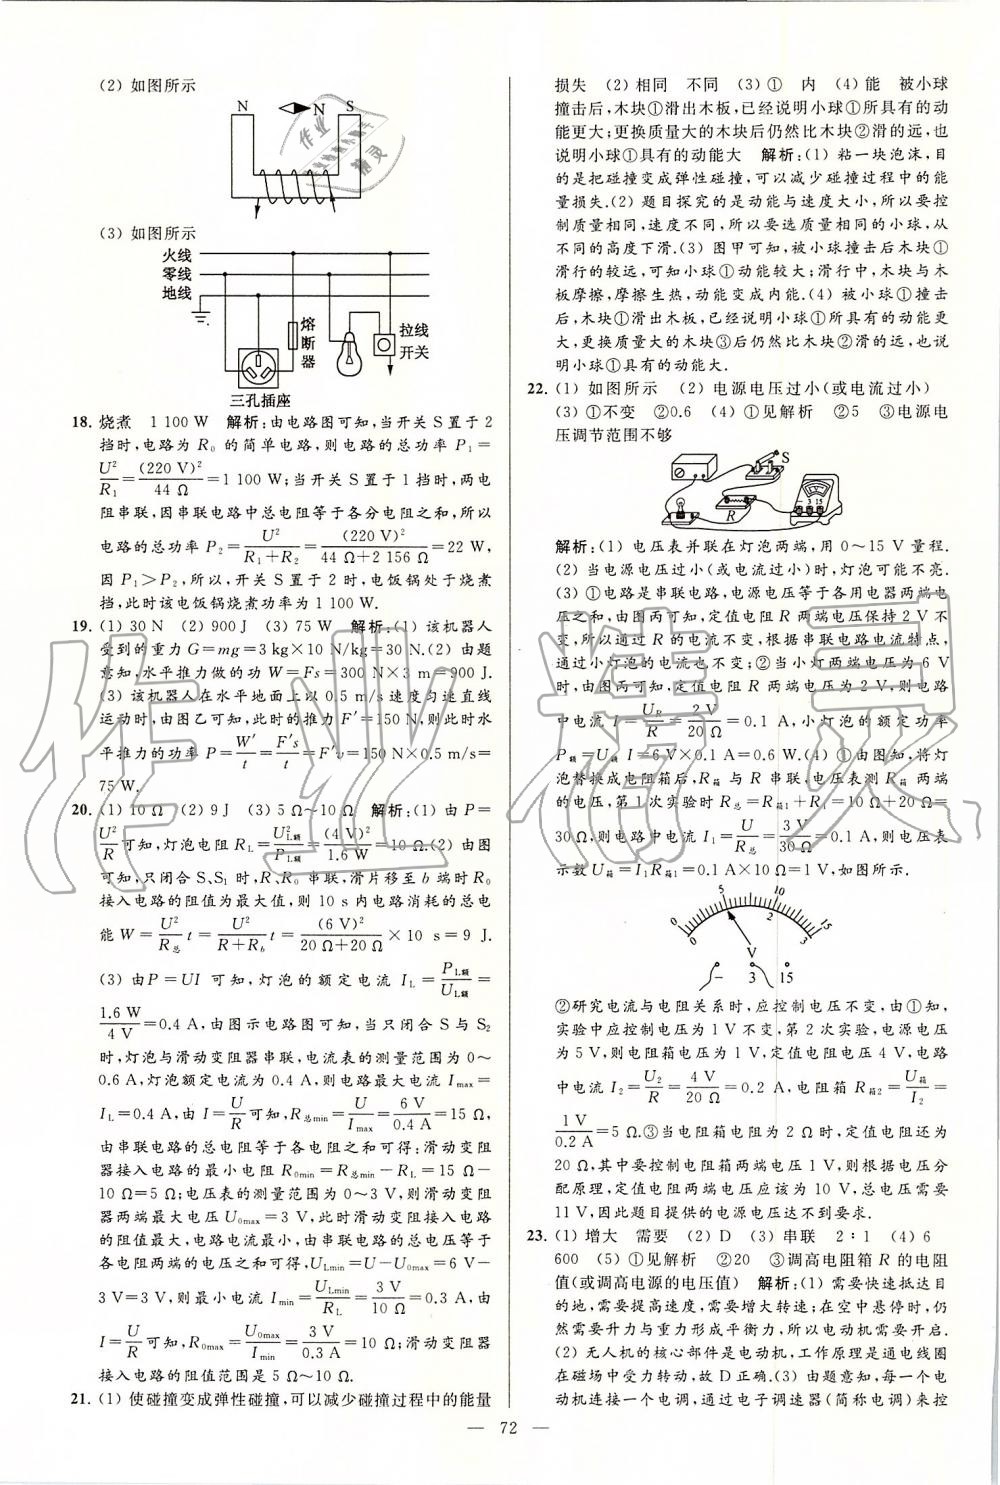 (2) 如图所示
N N S
(3) 如图所示
火线
零线
地线
熔断器
拉线开关
三孔插座
18. 烧煮 1 100 W 解析:由电路图可知,当开关 S 置于 2
挡时,电路为 R₀ 的简单电路,则电路的总功率 P₁=
U²/R₁=(220 V)²/44 Ω=1 100 W;当开关 S 置于 1 挡时,两电
阻串联,因串联电路中总电阻等于各分电阻之和,所以
电路的总功率 P₂=U²/(R₁+R₂)=(220 V)²/(44 Ω+2 156 Ω)=22 W,
因 P₁>P₂,所以,开关 S 置于 2 时,电饭锅处于烧煮
挡,此时该电饭锅烧煮功率为 1 100 W.
19. (1) 30 N (2) 900 J (3) 75 W 解析:(1) 该机器人
受到的重力 G=mg=3 kg×10 N/kg=30 N.(2) 由题
意知,水平推力做的功 W=Fs=300 N×3 m=900 J.
(3) 该机器人在水平地面上以 0.5 m/s 速度匀速直线
运动时,由图乙可知,此时的推力 F′=150 N,则此时水
平推力的功率 P=W′/t=F′s/t=F′v=150 N×0.5 m/s=
75 W.
20. (1) 10 Ω (2) 9 J (3) 5 Ω～10 Ω 解析:(1) 由 P=
U²/R可知,灯泡电阻 R_L=U²_L额/P_L额=(4 V)²/1.6 W=10 Ω.(2) 由图
可知,只闭合 S、S₁ 时,R、R₀ 串联,滑片移至 b 端时 R₀
接入电路的阻值为最大值,则 10 s 内电路消耗的总电
能 W=U²/R总 t=U²/(R+R_b) t=(6 V)²/(20 Ω+20 Ω)×10 s=9 J.
(3) 由P=UI 可知,灯泡的额定电流 I_L=P_L额/U_L额=
1.6 W/4 V=0.4 A,由图示电路图可知,当只闭合 S 与 S₂
时,灯泡与滑动变阻器串联,电流表的测量范围为 0～
0.6 A,灯泡额定电流为 0.4 A,则电路最大电流 I_max=
I_L=0.4 A,由 I=U/R可知,R总min=U/I_max=6 V/0.4 A=15 Ω,
由串联电路的总电阻等于各电阻之和可得:滑动变阻
器接入电路的最小电阻 R₀min=R总min−R_L=15 Ω−
10 Ω=5 Ω;电压表的测量范围为 0～3 V,则滑动变阻
器两端最大电压 U₀max=3 V,此时滑动变阻接入电路
的阻值最大,电路电流最小,由串联电路的总电压等于
各电阻两端的电压之和可得,U_Lmin=U−U₀max=6 V−
3 V=3 V,则最小电流 I_min=U_Lmin/R_L=3 V/10 Ω=0.3 A,由
I=U/R可知,R₀max=U₀max/I_min=3 V/0.3 A=10 Ω;滑动变阻器
接入电路的阻值范围是 5 Ω～10 Ω.
21. (1) 使碰撞变成弹性碰撞,可以减少碰撞过程中的能量
损失 (2) 相同 不同 (3) ① 内 (4) 能 被小球
撞击后,木块①滑出木板,已经说明小球①所具有的动
能更大;更换质量大的木块后仍然比木块②滑的远,也
说明小球①具有的动能大 解析:(1) 粘一块泡沫,目
的是把碰撞变成弹性碰撞,可以减少碰撞过程中的能
量损失.(2) 题目探究的是动能与速度大小,所以要控
制质量相同,速度不同,所以要选质量相同的小球,从
不同的高度下滑.(3) 图甲可知,被小球撞击后木块①
滑行的较远,可知小球①动能较大;滑行中,木块与木
板摩擦,摩擦生热,动能变成内能.(4) 被小球①撞击
后,木块①滑出木板,已经说明小球①所具有的动能更
大,更换质量大的木块③后仍然比木块②滑的远,也说
明小球①具有的动能大.
22. (1) 如图所示 (2) 电源电压过小(或电流过小)
(3) ①不变 ②0.6 (4) ①见解析 ②5 ③电源电
压调节范围不够
S
R
− 3 15
解析:(1) 电压表并联在灯泡两端,用 0～15 V 量程.
(2) 当电源电压过小(或电流过小)时,灯泡可能不亮.
(3) ①电路是串联电路,电源电压等于各用电器两端电
压之和,由图丙可知,定值电阻 R 两端电压保持 2 V 不
变,所以通过 R 的电流不变,根据串联电路电流特点,
通过小灯泡的电流也不变;②当小灯两端电压为 6 V
时,由图丙可知,定值电阻 R 两端电压为 2 V,则电路
中电流 I=U_R/R=2 V/20 Ω=0.1 A,小灯泡的额定功率
P额=U额I=6 V×0.1 A=0.6 W.(4) ①由图知,将灯
泡替换成电阻箱后,R箱 与 R 串联,电压表测 R箱 两端
的电压,第 1 次实验时 R总=R箱1+R=10 Ω+20 Ω=
30 Ω,则电路中电流 I₁=U/R总=3 V/30 Ω=0.1 A,则电压表
示数 U箱=I₁R箱1=0.1 A×10 Ω=1 V,如图所示.
0 5 10 15
0 1 2 3
V
− 3 15
②研究电流与电阻关系时,应控制电压不变,由①知,
实验中应控制电压为 1 V 不变,第 2 次实验,电源电压
为 5 V,则电阻箱电压为 1 V,定值电阻电压 4 V,电路
中电流 I₂=U₂/R=4 V/20 Ω=0.2 A,电阻箱 R箱2=U箱/I₂=
1 V/0.2 A=5 Ω.③当电阻箱电阻为 2 Ω 时,定值电阻还为
20 Ω,其中要控制电阻箱两端电压 1 V,则根据电压分
配原理,定值电阻两端电压应该为 10 V,总电压需要
11 V,因此题目提供的电源电压达不到要求.
23. (1) 增大 需要 (2) D (3) 串联 2∶1 (4) 6
600 (5) ①见解析 ②20 ③调高电阻箱 R 的电阻
值(或调高电源的电压值) 解析:(1) 需要快速抵达目
的地,需要提高速度,需要增大转速;在空中悬停时,仍
然需要升力与重力形成平衡力,所以电动机需要开启.
(2) 无人机的核心部件是电动机,工作原理是通电线圈
在磁场中受力转动,故 D 正确.(3) 由题意知,每一个电
动机接一个电调,通过电子调速器(简称电调)来控
— 72 —
作业精灵